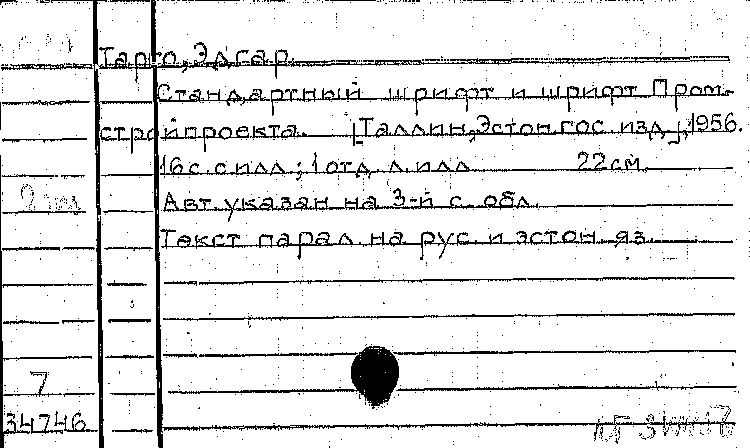 Тарго, Эдгар.
Стандартный шрифт и шрифт Пром-
стройпроекта. [Таллин, Эстон. гос. изд.], 1956.
16 с. с илл.; 1 отд. л. илл. 22 см.
Авт. указан на 3-й с. обл.
Текст парал. на рус. и эстон. яз.
7
34746